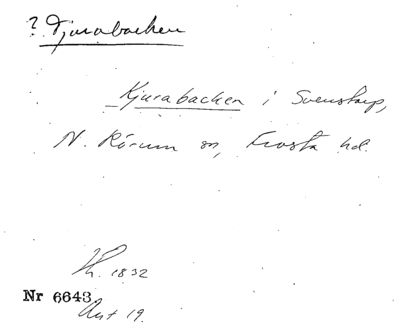 ? Djurabacken
Kjurabacken i Svenstorp,
N. Rörum sn, Frosta hd.
1832
Nr 6643
Ant 19.